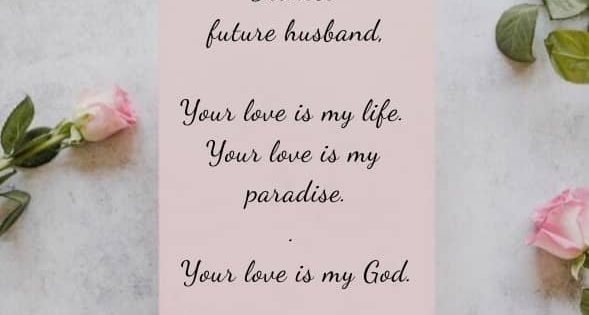 future husband,
Your love is my life.
Your love is my
paradise.
.
Your love is my God.